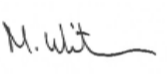 M. Whit